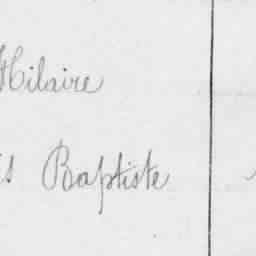 Hilaire
Baptiste